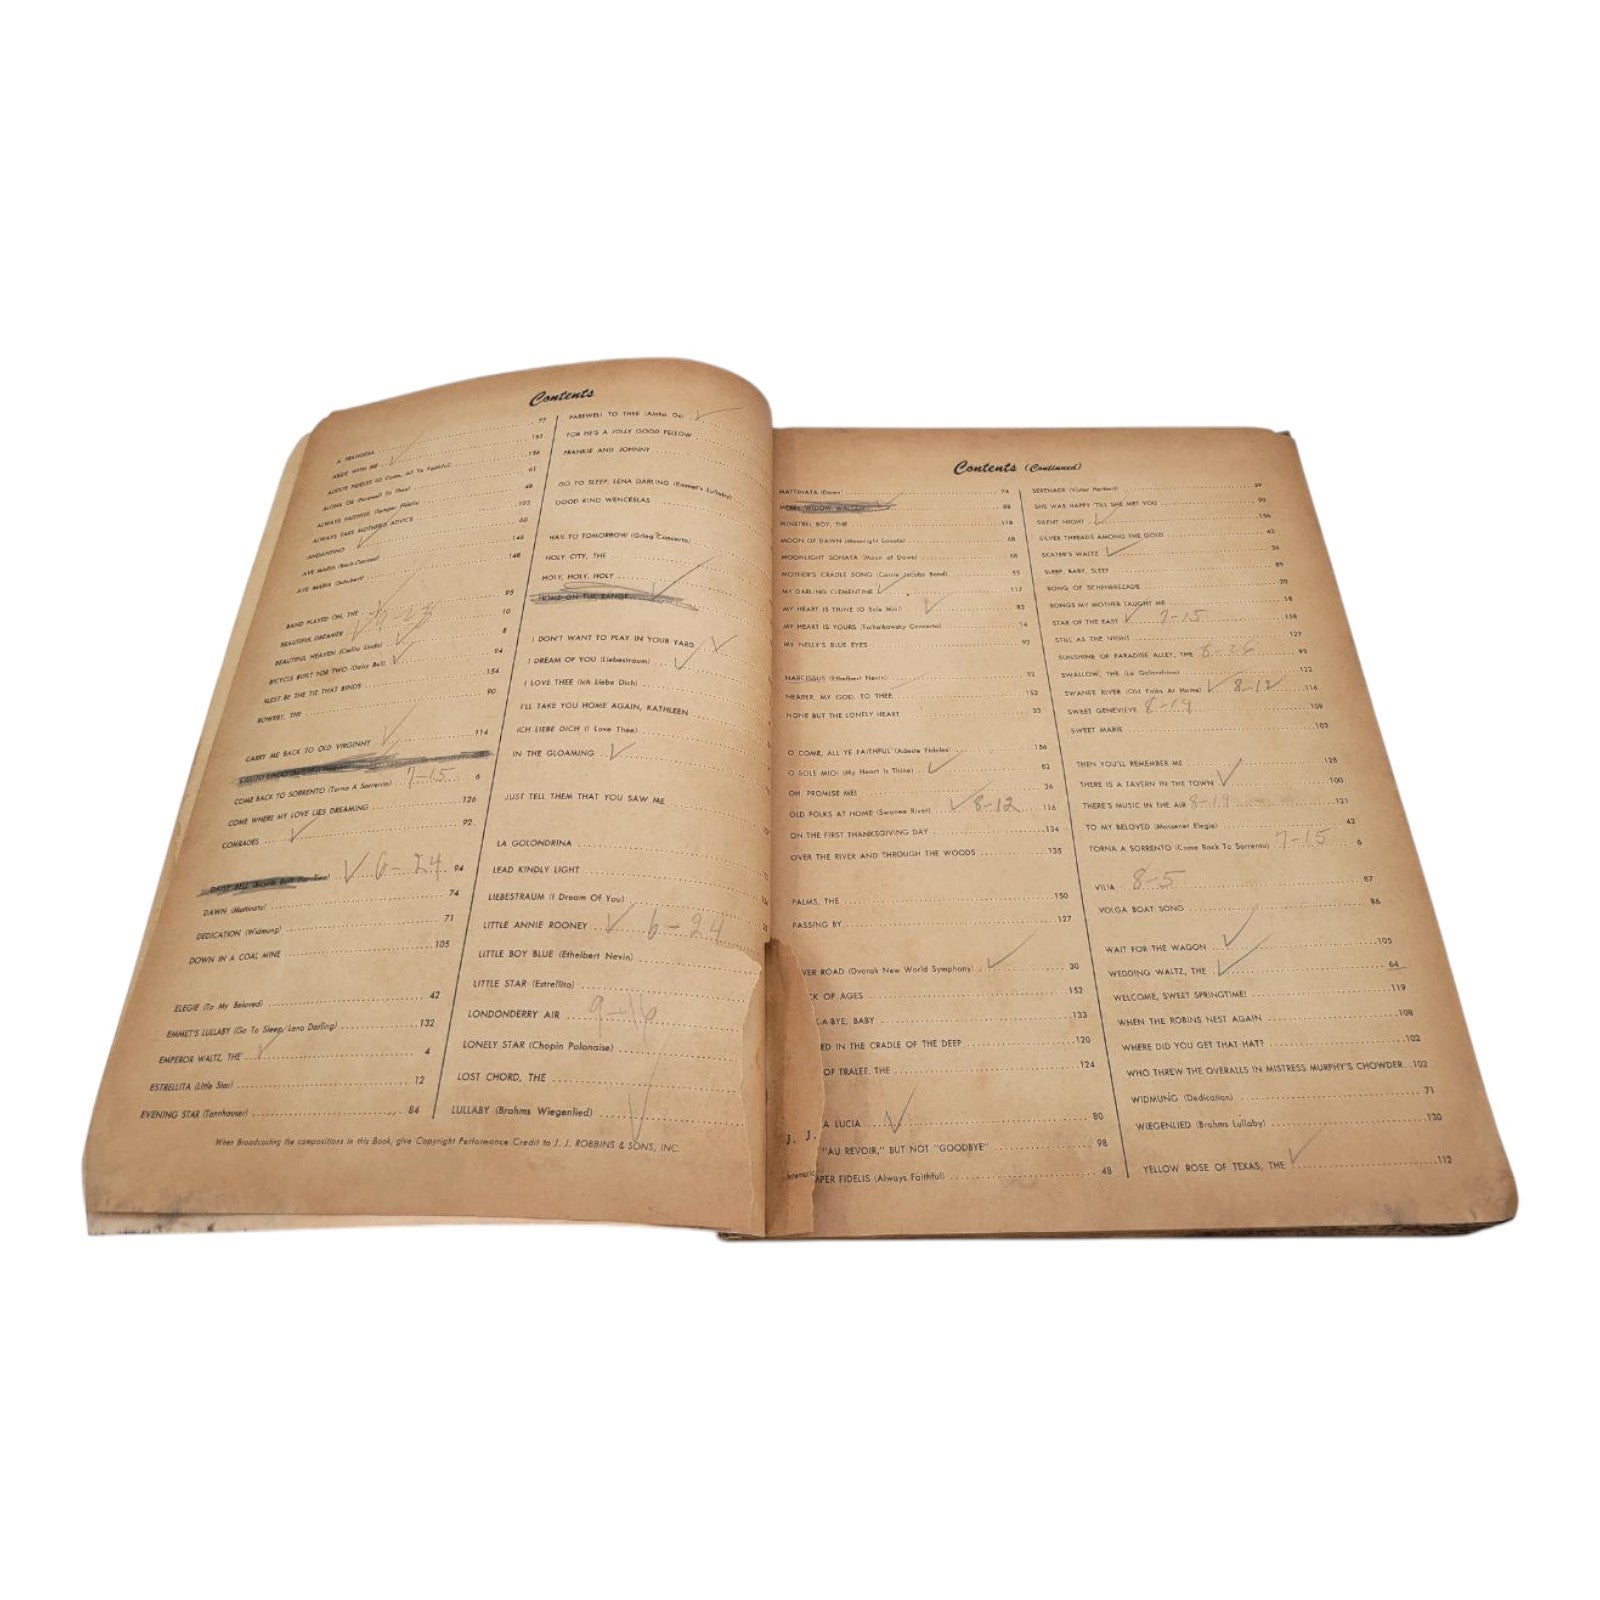 Contents
A FRANGESA 77
ABIDE WITH ME 152
ADESTE FIDELES (O Come, All Ye Faithful) 156
ALOHA OE (Farewell To Thee) 61
ALWAYS FAITHFUL (Semper Fidelis) 48
ALWAYS TAKE MOTHER'S ADVICE 102
ANDANTINO 60
AVE MARIA (Bach-Gounod) 146
AVE MARIA (Schubert) 148
BAND PLAYED ON, THE 95
BEAUTIFUL DREAMER 10
BEAUTIFUL HEAVEN (Cielito Lindo) 8
BICYCLE BUILT FOR TWO (Daisy Bell) 94
BLEST BE THE TIE THAT BINDS 154
BOWERY, THE 90
CARRY ME BACK TO OLD VIRGINNY 114
CIELITO LINDO
COME BACK TO SORRENTO (Torna A Sorrento) 7-15 6
COME WHERE MY LOVE LIES DREAMING 126
COMRADES 92
DAISY BELL (Bicycle Built For Two) 6-24 94
DAWN (Mattinata) 74
DEDICATION (Widmung) 71
DOWN IN A COAL MINE 105
ELEGIE (To My Beloved) 42
EMMET'S LULLABY (Go To Sleep, Lena Darling) 132
EMPEROR WALTZ, THE 4
ESTRELLITA (Little Star) 12
EVENING STAR (Tannhauser) 84
FAREWELL TO THEE (Aloha Oe)
FOR HE'S A JOLLY GOOD FELLOW
FRANKIE AND JOHNNY
GO TO SLEEP, LENA DARLING (Emmet's Lullaby)
GOOD KING WENCESLAS
HAIL TO TOMORROW (Grieg Concerto)
HOLY CITY, THE
HOLY, HOLY, HOLY
HOME ON THE RANGE
I DON'T WANT TO PLAY IN YOUR YARD
I DREAM OF YOU (Liebestraum)
I LOVE THEE (Ich Liebe Dich)
I'LL TAKE YOU HOME AGAIN, KATHLEEN
ICH LIEBE DICH (I Love Thee)
IN THE GLOAMING
JUST TELL THEM THAT YOU SAW ME
LA GOLONDRINA
LEAD KINDLY LIGHT
LIEBESTRAUM (I Dream Of You)
LITTLE ANNIE ROONEY 6-24
LITTLE BOY BLUE (Ethelbert Nevin)
LITTLE STAR (Estrellita)
LONDONDERRY AIR 9-16
LONELY STAR (Chopin Polonaise)
LOST CHORD, THE
LULLABY (Brahms Wiegenlied)
When Broadcasting the compositions in this Book, give Copyright Performance Credit to J. J. ROBBINS & SONS, INC.
Contents (Continued)
MATTINATA (Dawn 74
MERRY WIDOW WALTZ 88
MINSTREL BOY, THE 118
MOON OF DAWN (Moonlight Sonata) 68
MOONLIGHT SONATA (Moon of Dawn) 68
MOTHER'S CRADLE SONG (Carrie Jacobs Bond) 55
MY DARLING CLEMENTINE 117
MY HEART IS THINE (O Sole Mio) 82
MY HEART IS YOURS (Tschaikowsky Concerto) 14
MY NELLY'S BLUE EYES 92
NARCISSUS (Ethelbert Nevin) 52
NEARER, MY GOD, TO THEE 152
NONE BUT THE LONELY HEART 23
O COME, ALL YE FAITHFUL (Adeste Fideles) 156
O SOLE MIO! (My Heart is Thine) 82
OH, PROMISE ME! 26
OLD FOLKS AT HOME (Swanee River) 8-12 116
ON THE FIRST THANKSGIVING DAY 134
OVER THE RIVER AND THROUGH THE WOODS 135
PALMS, THE 150
PASSING BY 127
VER ROAD (Dvorak New World Symphony) 30
CK OF AGES 152
A-BYE, BABY 133
ED IN THE CRADLE OF THE DEEP 120
OF TRALEE, THE 124
A LUCIA 80
"AU REVOIR," BUT NOT "GOODBYE" 98
MPER FIDELIS (Always Faithful) 48
J. J.
SERENADE (Victor Herbert) 39
SHE WAS HAPPY 'TILL SHE MET YOU 99
SILENT NIGHT 156
SILVER THREADS AMONG THE GOLD
SKATER'S WALTZ 36
SLEEP, BABY, SLEEP 89
SONG OF SCHEHEREZADE 20
SONGS MY MOTHER TAUGHT ME 18
STAR OF THE EAST 7-15 138
STILL AS THE NIGHT 129
SUNSHINE OF PARADISE ALLEY, THE 8-26 93
SWALLOW, THE (La Golondrina) 122
SWANEE RIVER (Old Folks At Home) 8-12 116
SWEET GENEVIEVE 8-19 109
SWEET MARIE 103
THEN YOU'LL REMEMBER ME 128
THERE IS A TAVERN IN THE TOWN 100
THERE'S MUSIC IN THE AIR 8-19 121
TO MY BELOVED (Massenet Elegie) 42
TORNA A SORRENTO (Come Back To Sorrento) 7-15 6
VILIA 8-5 87
VOLGA BOAT SONG 86
WAIT FOR THE WAGON 105
WEDDING WALTZ, THE 64
WELCOME, SWEET SPRINGTIME! 119
WHEN THE ROBINS NEST AGAIN 108
WHERE DID YOU GET THAT HAT? 102
WHO THREW THE OVERALLS IN MISTRESS MURPHY'S CHOWDER 102
WIDMUNG (Dedication) 71
WIEGENLIED (Brahms Lullaby) 130
YELLOW ROSE OF TEXAS, THE 112